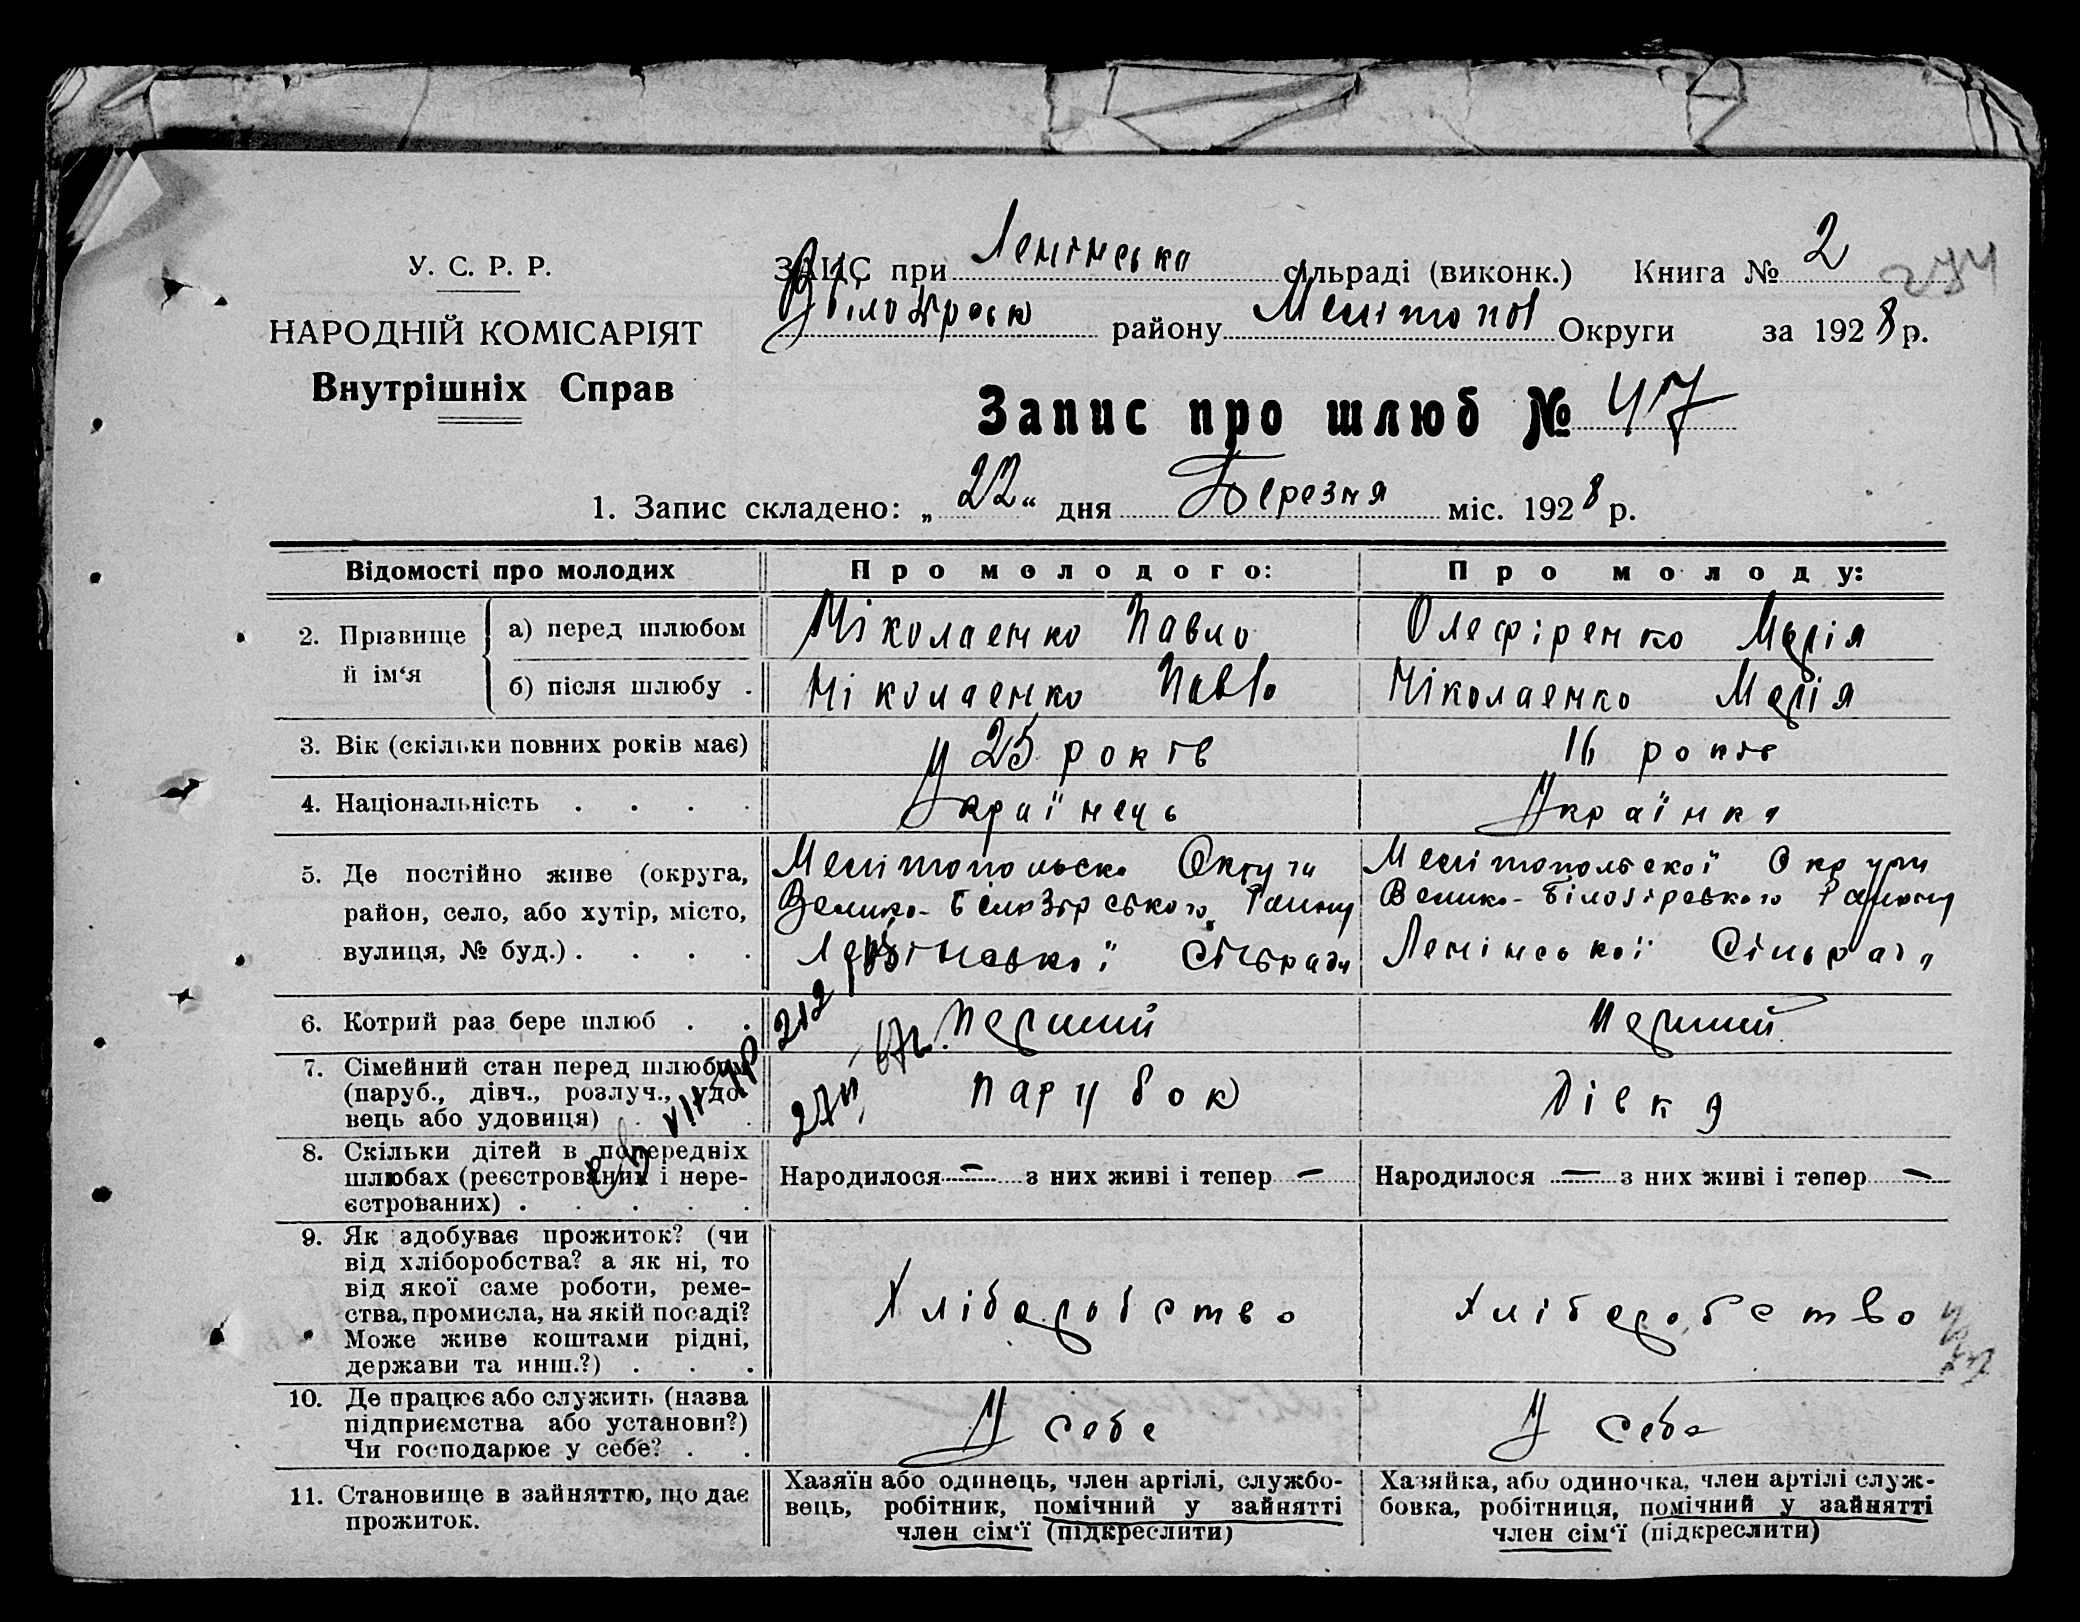 У. С. Р. Р.
НАРОДНІЙ КОМІСАРІЯТ
Внутрішніх Справ
ЗАПС при Ленінська сільраді (виконк.) Книга № 2 274
В Білозірськ району Меліtопол Округи за 1928 р.
Запис про шлюб № 47
1. Запис складено: „22“ дня Березня міс. 1928 р.
Відомості про молодих Про молодого: Про молоду:
2. Прізвище й ім‘я
а) перед шлюбом Міколаенко Павло Олефіренко Марія
б) після шлюбу . Ніколаенко Павло Ніколаенко Марія
3. Вік (скільки повних років має) 25 років 16 років
4. Національність . . . . Українець Українка
5. Де постійно живе (округа, район, село, або хутір, місто, вулиця, № буд.) . . . .
Мелітопольско Округи
Велико-Білозірського Району
Ленінської Сільради
Мелітопольської Округи
Велико-Білозірського Району
Ленінської Сільради
6. Котрий раз бере шлюб . . Перший Перший
7. Сімейний стан перед шлюбом
(паруб., дівч., розлуч., удо-
вець або удовиця) . . парубок Дівка
8. Скільки дітей в попередніх
шлюбах (реєстрованих і нере-
єстрованих) . . . . .
Народилося — з них живі і тепер — Народилося — з них живі і тепер —
9. Як здобуває прожиток? (чи
від хліборобства? а як ні, то
від якої саме роботи, реме-
ства, промисла, на якій посаді?
Може живе коштами рідні,
держави та инш.?) . . .
Хліборобство Хліборобство
10. Де працює або служить (назва
підприємства або установи?)
Чи господарює у себе? . .
У себе У себе
11. Становище в зайняттю, що дає
прожиток.
Хазяїн або одинець, член артілі, службо-
вець, робітник, помічний у зайнятті
член сім‘ї (підкреслити)
Хазяйка, або одиночка, член артілі служ-
бовка, робітниця, помічний у зайнятті
член сім‘ї (підкреслити)